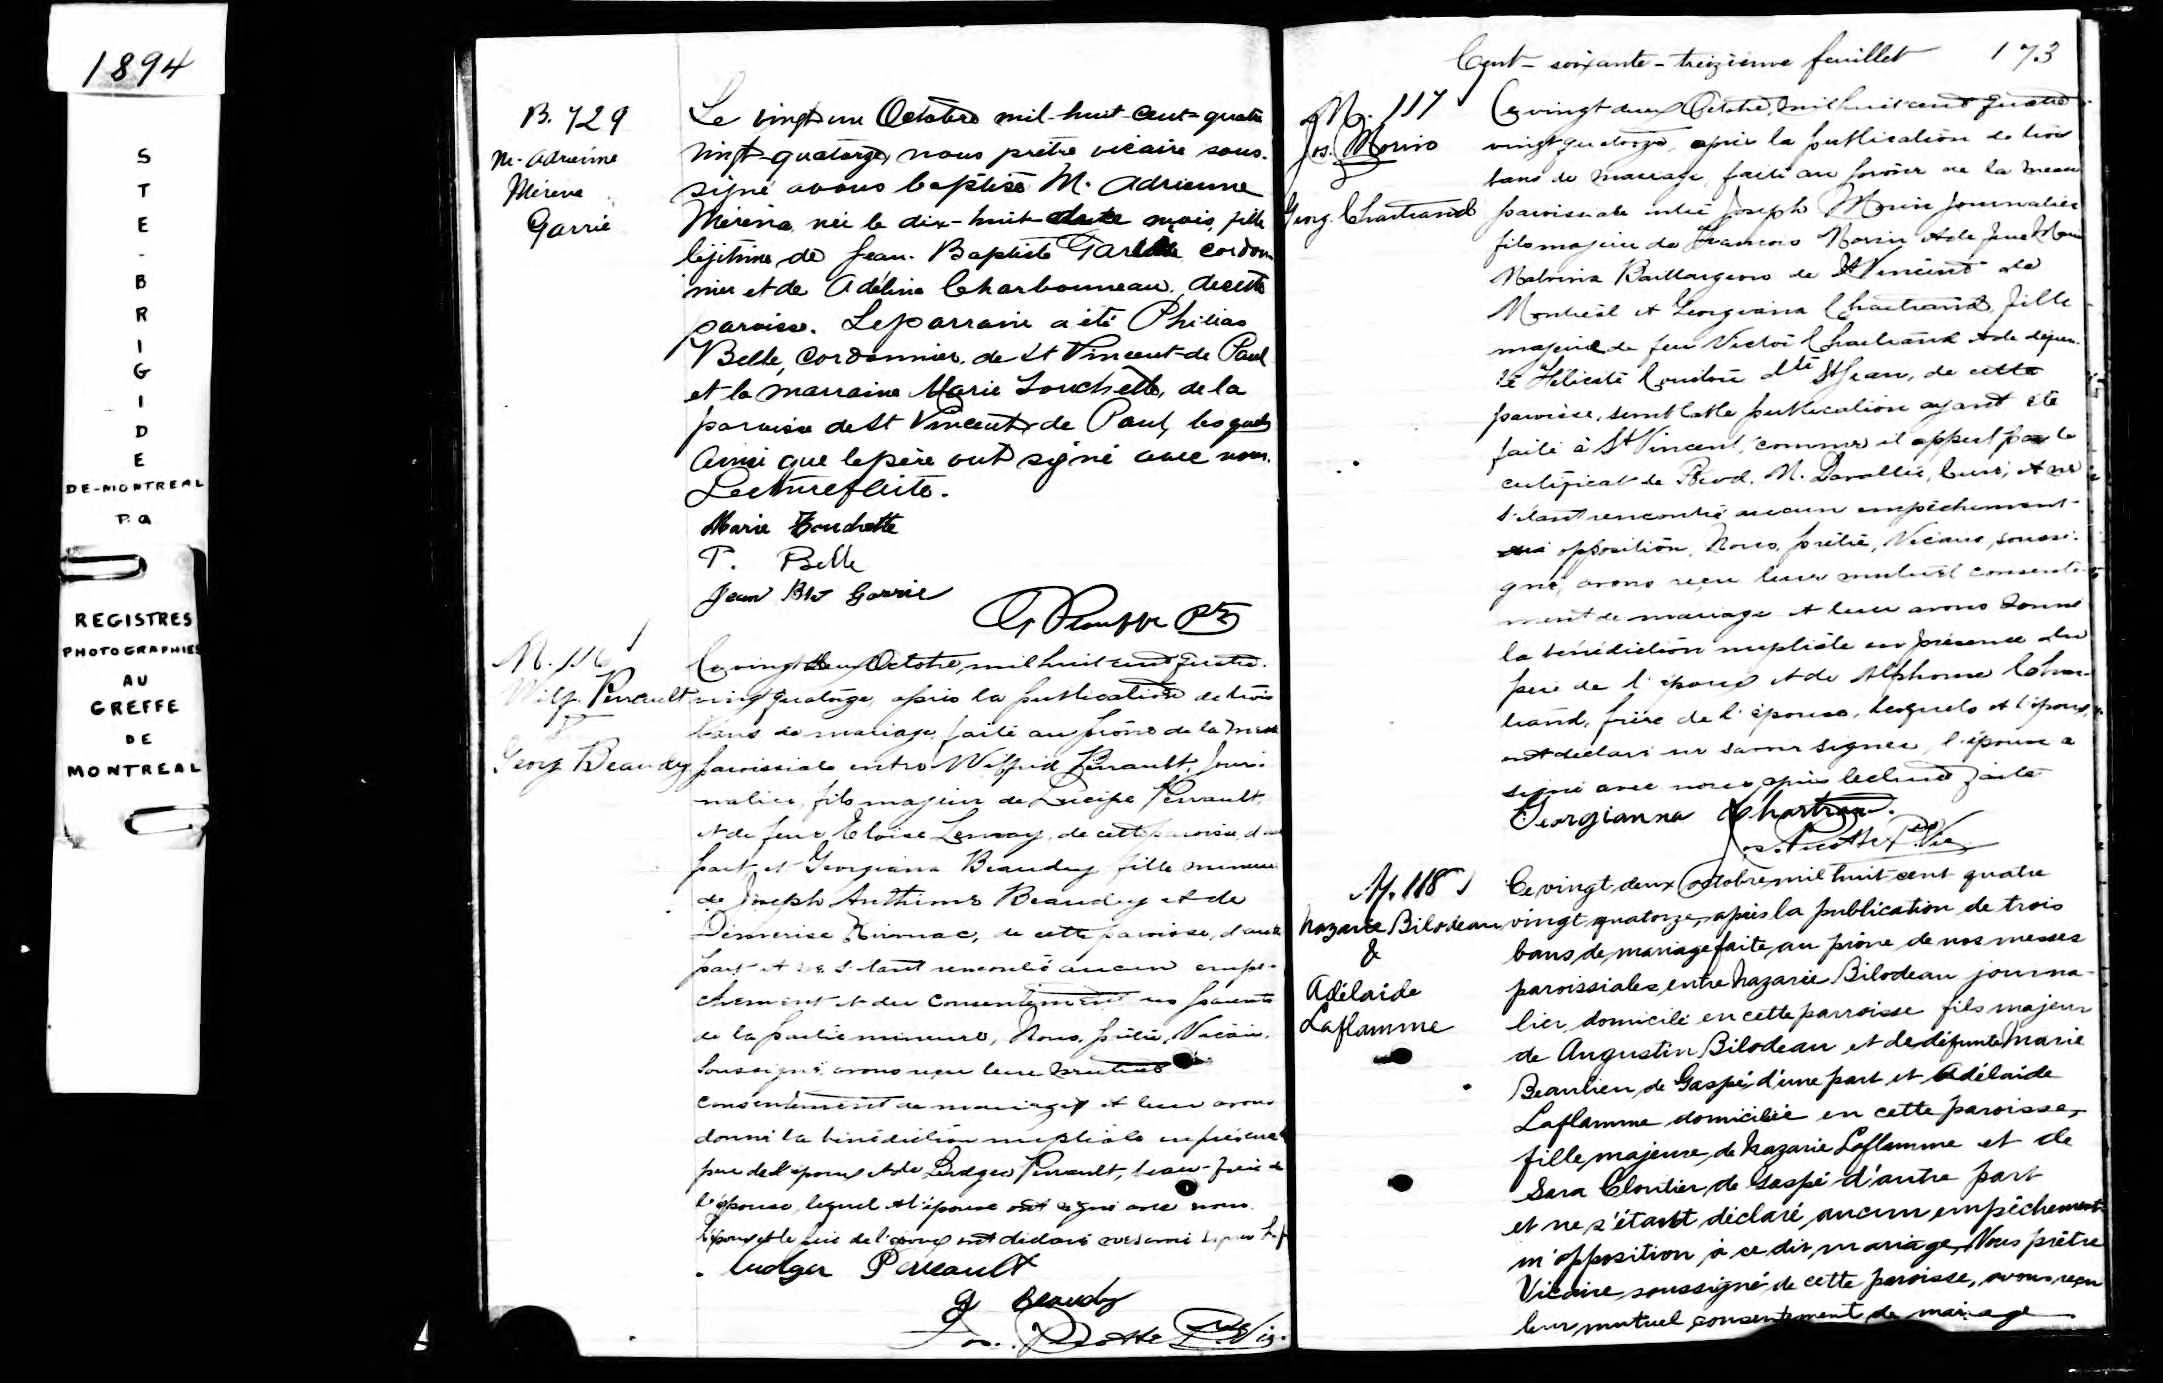 1894
STE-BRIGIDE
DE-MONTREAL
P.Q
REGISTRES
PHOTOGRAPHIES
AU
GREFFE
DE
MONTREAL
B. 729
M. Adrienne
Mirena
Garrié
Le vingt un Octobre mil-huit-cent-quatre
vingt-quatorze, nous prêtre vicaire sous-
signé avons baptisé M. Adrienne
Mirena, née le dix-huit mois, fille
légitime de Jean-Baptiste cordon
nier et de Adélina Charbonneau, de cette
paroisse. Le parrain a été Philias
Belle, cordonnier, de St Vincent-de Paul
et la marraine Marie Touchette, de la
paroisse de St Vincent de Paul, lesquels
ainsi que le père ont signé avec nous.
Lecture faite.
Marie Touchette
P. Belle
Jean Bte Garrié
M. 116
Wilf. Perrault
&
Georg. Beaudry
Ce vingt deux Octobre, mil huit cent quatre-
vingt quatorze, après la publication de trois
bans de mariage, faite au prône de la messe
paroissiale entre Wilfrid Perrault, Jour-
nalier, fils majeur de Perrault,
et de feue Eloise Lemay, de cette paroisse, d'une
part, et Georgiana Beaudry fille mineure
de Joseph Anthime Beaudry et de
de cette paroisse, d'autre
part et ne s'étant rencontré aucun empê-
chement et du consentement des parents
de la partie mineure, Nous, prêtre, Vicaire,
Soussigné avons reçu leur mutuel
consentement de mariage et leur avons
donné la bénédiction nuptiale en présence
père de l'époux et de Ludger Perrault, beau-frère de
l'épouse, lequel et l'épouse ont signé avec nous.
L'époux et le père de l'époux ont déclaré
Ludger Perreault
G Beaudry
Cent-soixante-treizième feuillet 173
M. 117
Jos. Morin
&
Georg. Chartrand
Ce vingt deux Octobre, mil huit cent quatre-
vingt quatorze, après la publication de trois
bans de mariage, faite au prône de la messe
paroissiale entre Joseph Morin Journalier
fils majeur de Francois Morin et de
Malvina Baillargeon de St Vincent de
Montréal et Georgiana Chartrand, fille
majeure de feu Victor Chartrand et de défun-
te Félicité dte St Jean, de cette
paroisse, semblable publication ayant été
faite à St Vincent, comme il appert par le
certificat de Révd. M. Lavallée, Curé, et ne
s'étant rencontré aucun empêchement
opposition, Nous, prêtre, Vicaire, soussi-
gné, avons reçu leur mutuel consente-
ment de mariage et leur avons donné
la bénédiction nuptiale en présence du
père de l'époux et de Alphonse Char-
trand, frère de l'épouse, lesquels et l'époux
ont déclaré ne savoir signer, l'épouse a
signé avec nous après lecture faite
Georgianna Chartran.
M. 118
Nazarie Bilodeau
&
Adélaide
Laflamme
Ce vingt deux Octobre mil huit cent quatre
vingt quatorze, après la publication de trois
bans de mariage faite au prône de nos messes
paroissiales, entre Nazarie Bilodeau journa-
lier, domicilié en cette parroisse fils majeur
de Augustin Bilodeau et de défunte Marie
Beaulieu, de Gaspé d'une part et Adélaide
Laflamme domiciliée en cette paroisse,
fille, majeure, de Nazarie Laflamme et de
Sara Cloutier, de Gaspé d'autre part
et ne s'étant déclaré, aucun empêchement
ni opposition à ce dit mariage, Nous prêtre
Vicaire, soussigné de cette paroisse, avons reçu
leur mutuel consentement de mariage